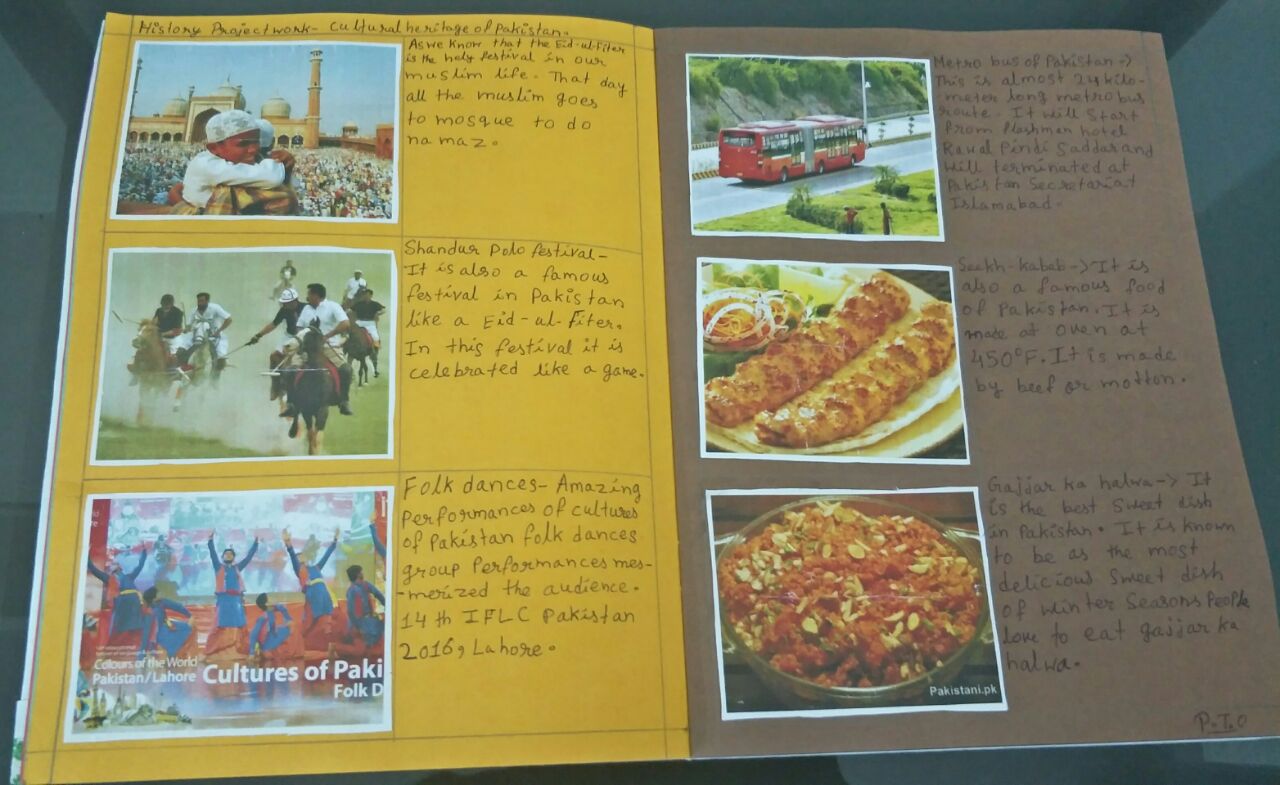 History Project work- Cultural heritage of Pakistan.
As we know that the Eid-ul-Fiter
is the holy festival in our
muslim life. That day
all the muslim goes
to mosque to do
namaz.
Shandur Polo festival-
It is also a famous
festival in Pakistan
like a Eid-ul-Fiter.
In this festival it is
celebrated like a game.
Folk dances- Amazing
Performances of cultures
of Pakistan folk dances
group Performances mes-
-merized the audience.
14th IFLC Pakistan
2016, Lahore.
Colours of the World
Pakistan/Lahore
Cultures of Paki
Folk D
Metro bus of Pakistan->
This is almost 24 kilo-
-meter long metro bus
route. It will start
from Flashman hotel
Rawal Pindi Saddar and
will terminated at
Pakistan Secretariat
Islamabad.
Seekh-kabab-> It is
also a famous food
of Pakistan. It is
made at oven at
450°F. It is made
by beef or motton.
Gajjar ka halwa-> It
is the best Sweet dish
in Pakistan. It is known
to be as the most
delicious Sweet dish
of winter Seasons People
love to eat gajjar ka
halwa.
Pakistani.pk
P.T.O